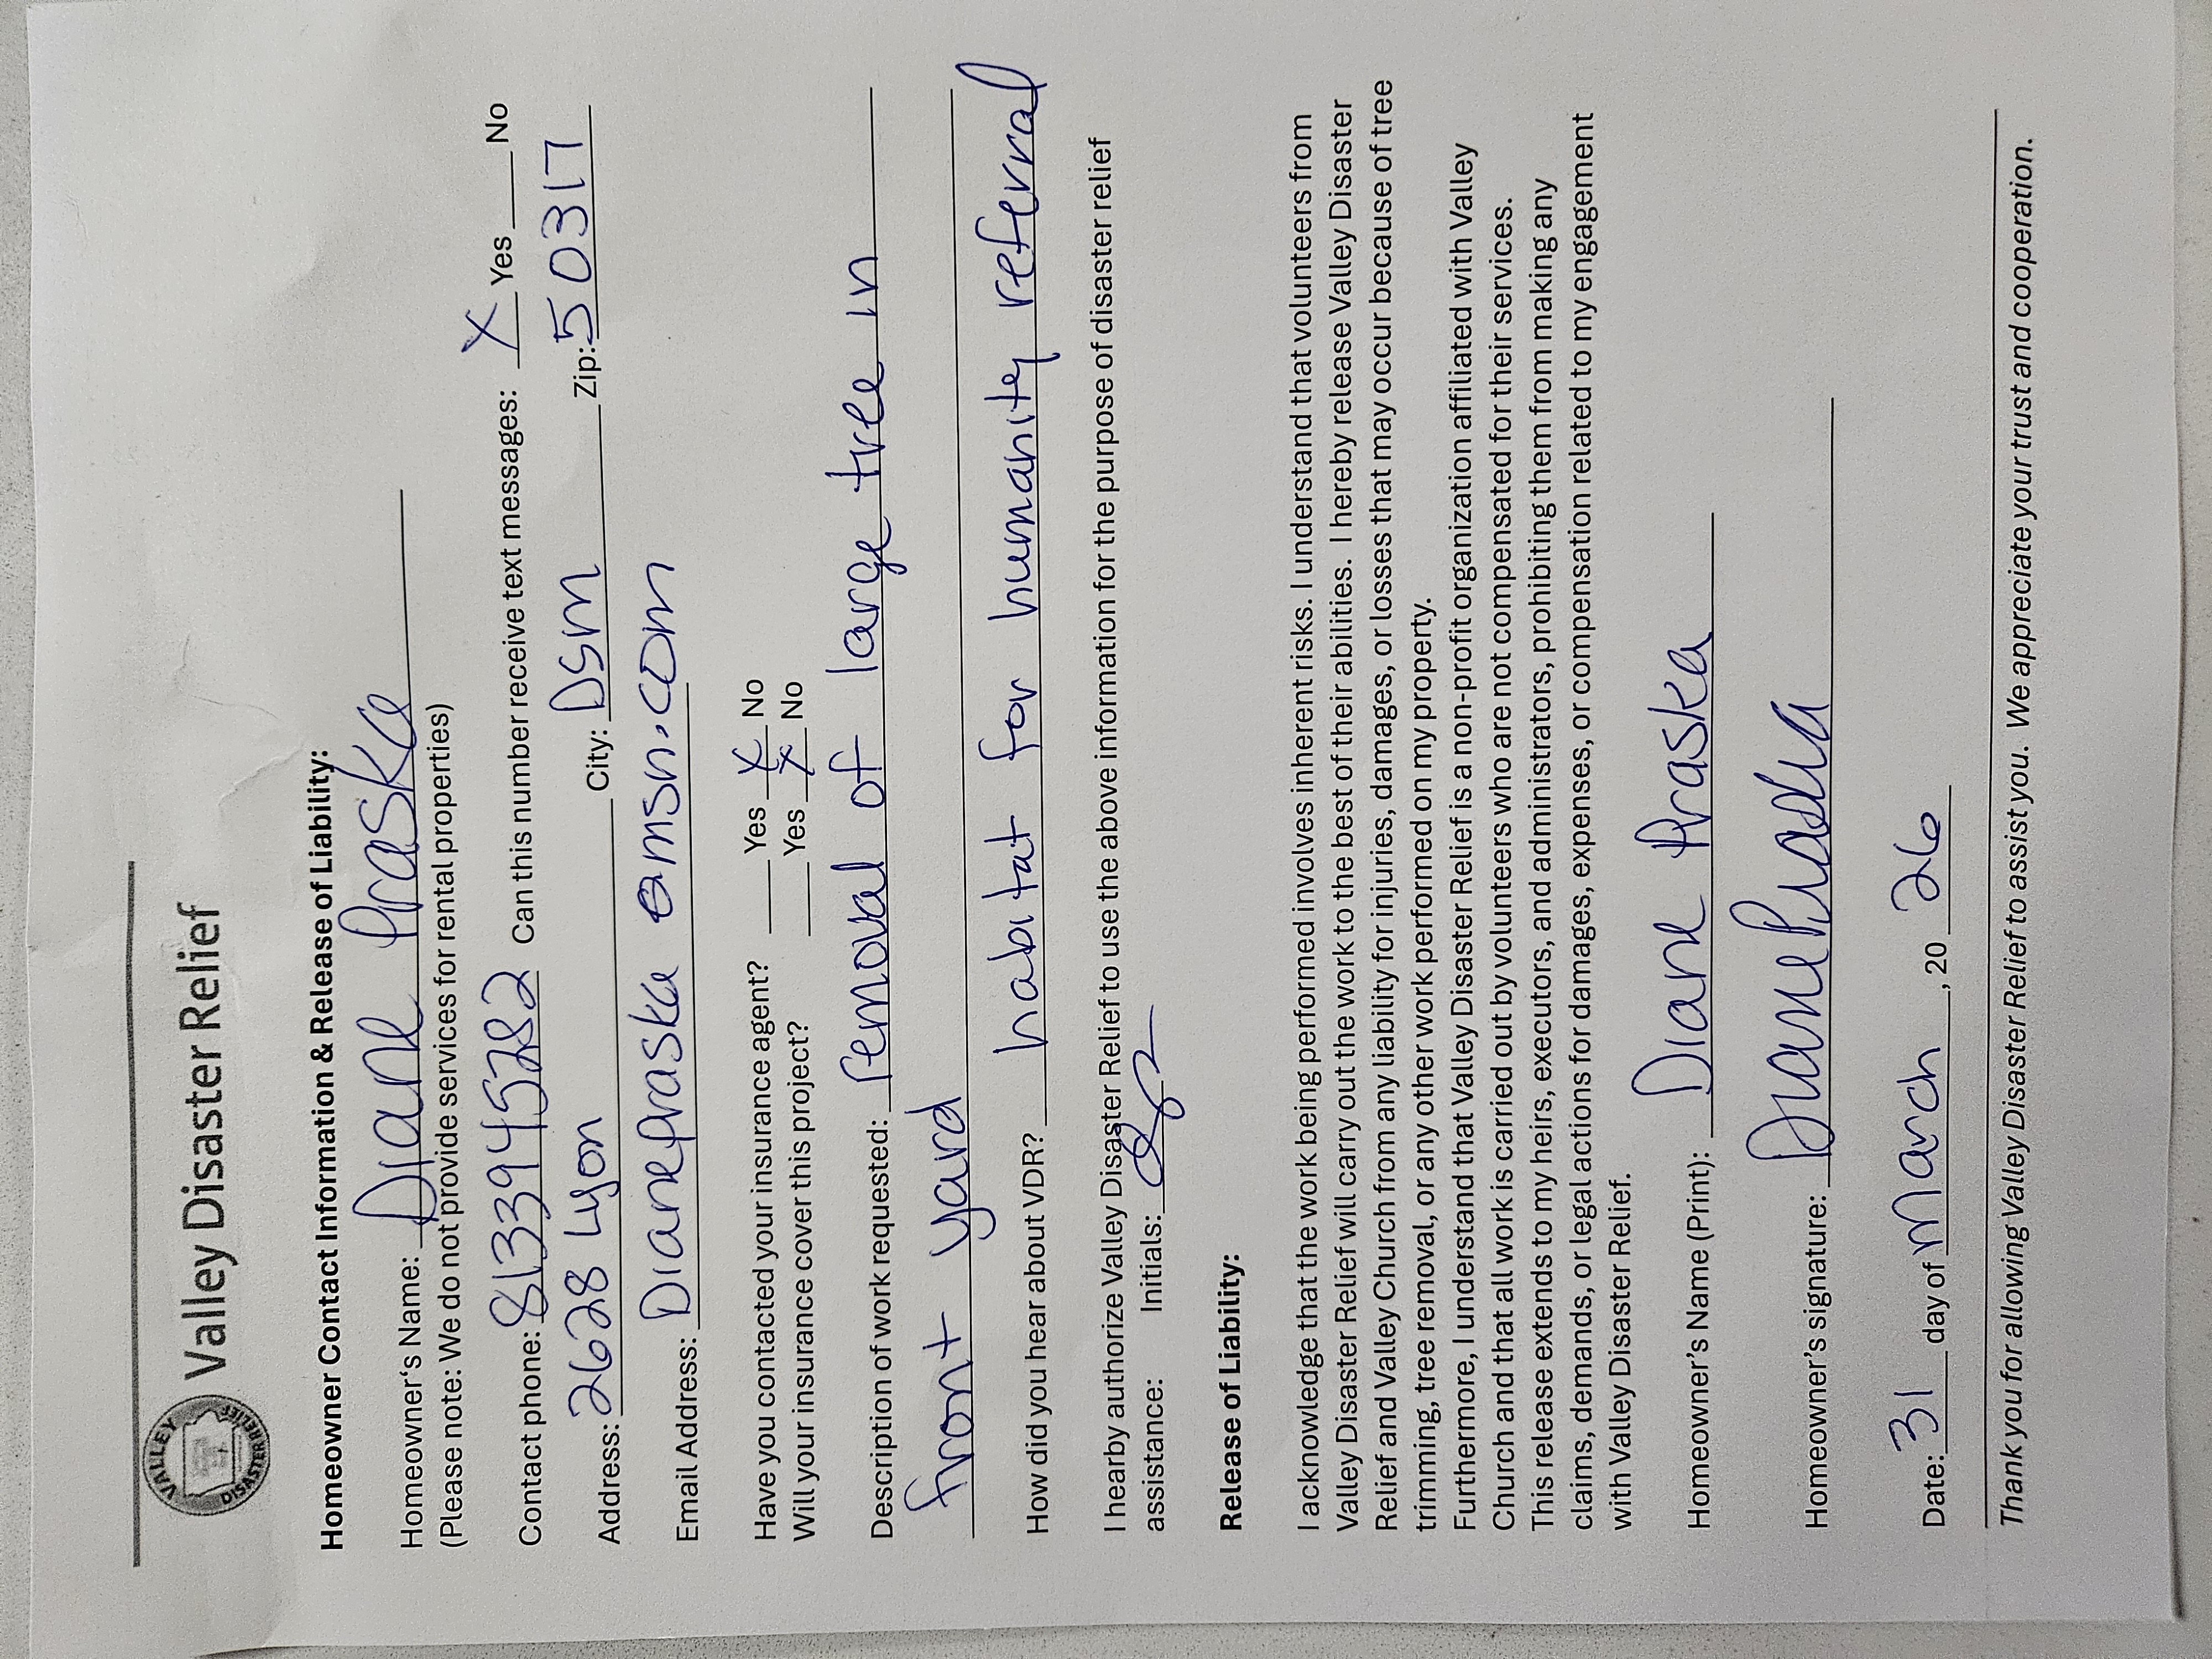 VALLEY
DISASTER RELIEF
Valley Disaster Relief
Homeowner Contact Information & Release of Liability:
Homeowner's Name: Diane Praska
(Please note: We do not provide services for rental properties)
Contact phone: 8133945782 Can this number receive text messages: X Yes ___ No
Address: 2628 Lyon City: Dsm Zip: 50317
Email Address: Dianepraska@msn.com
Have you contacted your insurance agent? ___ Yes X No
Will your insurance cover this project? ___ Yes X No
Description of work requested: removal of large tree in
front yard
How did you hear about VDR? habitat for humanity referral
I nearby authorize Valley Disaster Relief to use the above information for the purpose of disaster relief
assistance: Initials:
Release of Liability:
I acknowledge that the work being performed involves inherent risks. I understand that volunteers from
Valley Disaster Relief will carry out the work to the best of their abilities. I hereby release Valley Disaster
Relief and Valley Church from any liability for injuries, damages, or losses that may occur because of tree
trimming, tree removal, or any other work performed on my property.
Furthermore, I understand that Valley Disaster Relief is a non-profit organization affiliated with Valley
Church and that all work is carried out by volunteers who are not compensated for their services.
This release extends to my heirs, executors, and administrators, prohibiting them from making any
claims, demands, or legal actions for damages, expenses, or compensation related to my engagement
with Valley Disaster Relief.
Homeowner's Name (Print): Diane Praska
Homeowner's signature: Diane Praska
Date: 31 day of march, 20 26
Thank you for allowing Valley Disaster Relief to assist you. We appreciate your trust and cooperation.